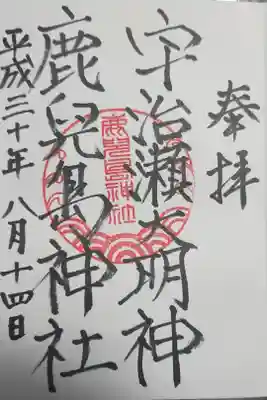 奉拝
宇治瀬大明神
鹿兒島神社
平成三十年 八月十四日
鹿兒島神社